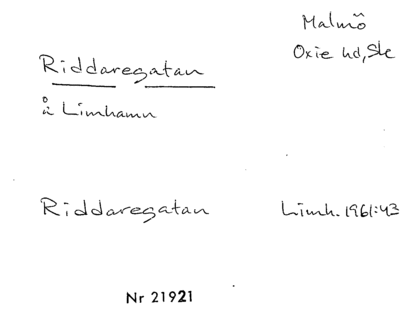 Malmö
Oxie hd, Sk
Riddaregatan
å Limhamn
Riddaregatan Limh. 1961:43
Nr 21921